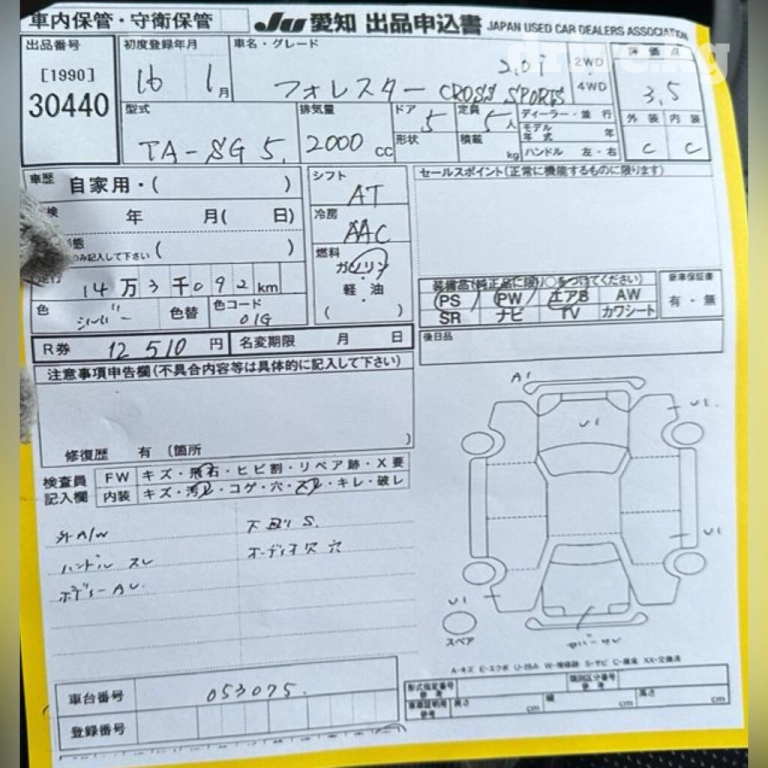 車内保管・守衛保管
Ju 愛知 出品申込書 JAPAN USED CAR DEALERS ASSOCIATION
出品番号
[1990]
30440
初度登録年月
16 1月
車名・グレード
フォレスター CROSS SPORTS 2.0i
2WD
4WD
評価点
3.5
型式
TA-SG5
排気量
2000 CC
ドア
5
形状
定員
5人
積載
kg
ディーラー・並行
モデル年式 年
ハンドル 左・右
外装 内装
C C
車歴 自家用・( )
年 月( 日)
のみ記入して下さい ( )
走行
14万3千092km
シフト
AT
冷房
AAC
燃料
ガソリン
・
軽・油
( )
色 シルバー 色替 色コード 01G
R券 12510円 名変期限 月 日
セールスポイント(正常に機能するものに限ります)
装備品(純正品に限り○をつけてください)
PS PW エアB AW
SR ナビ TV カワシート
新車保証書
有・無
後日品
注意事項申告欄(不具合内容等は具体的に記入して下さい)
修復歴 有 (箇所 )
検査員記入欄
FW キズ・飛石・ヒビ割・リペア跡・X要
内装 キズ・汚レ・コゲ・穴・スレ・キレ・破レ
外A/W
ハンドル スレ
ボディーAU
下回りS.
オーディオ穴
A1
U1
U2
U1
U1
スペア
A-キズ E-エクボ U-凹み W-補修跡 S-サビ C-腐食 XX-交換済
車台番号 053075
登録番号
形式指定番号
参考
類別区分番号
参考
車庫証明用
参考
長さ cm 幅 cm 高さ cm